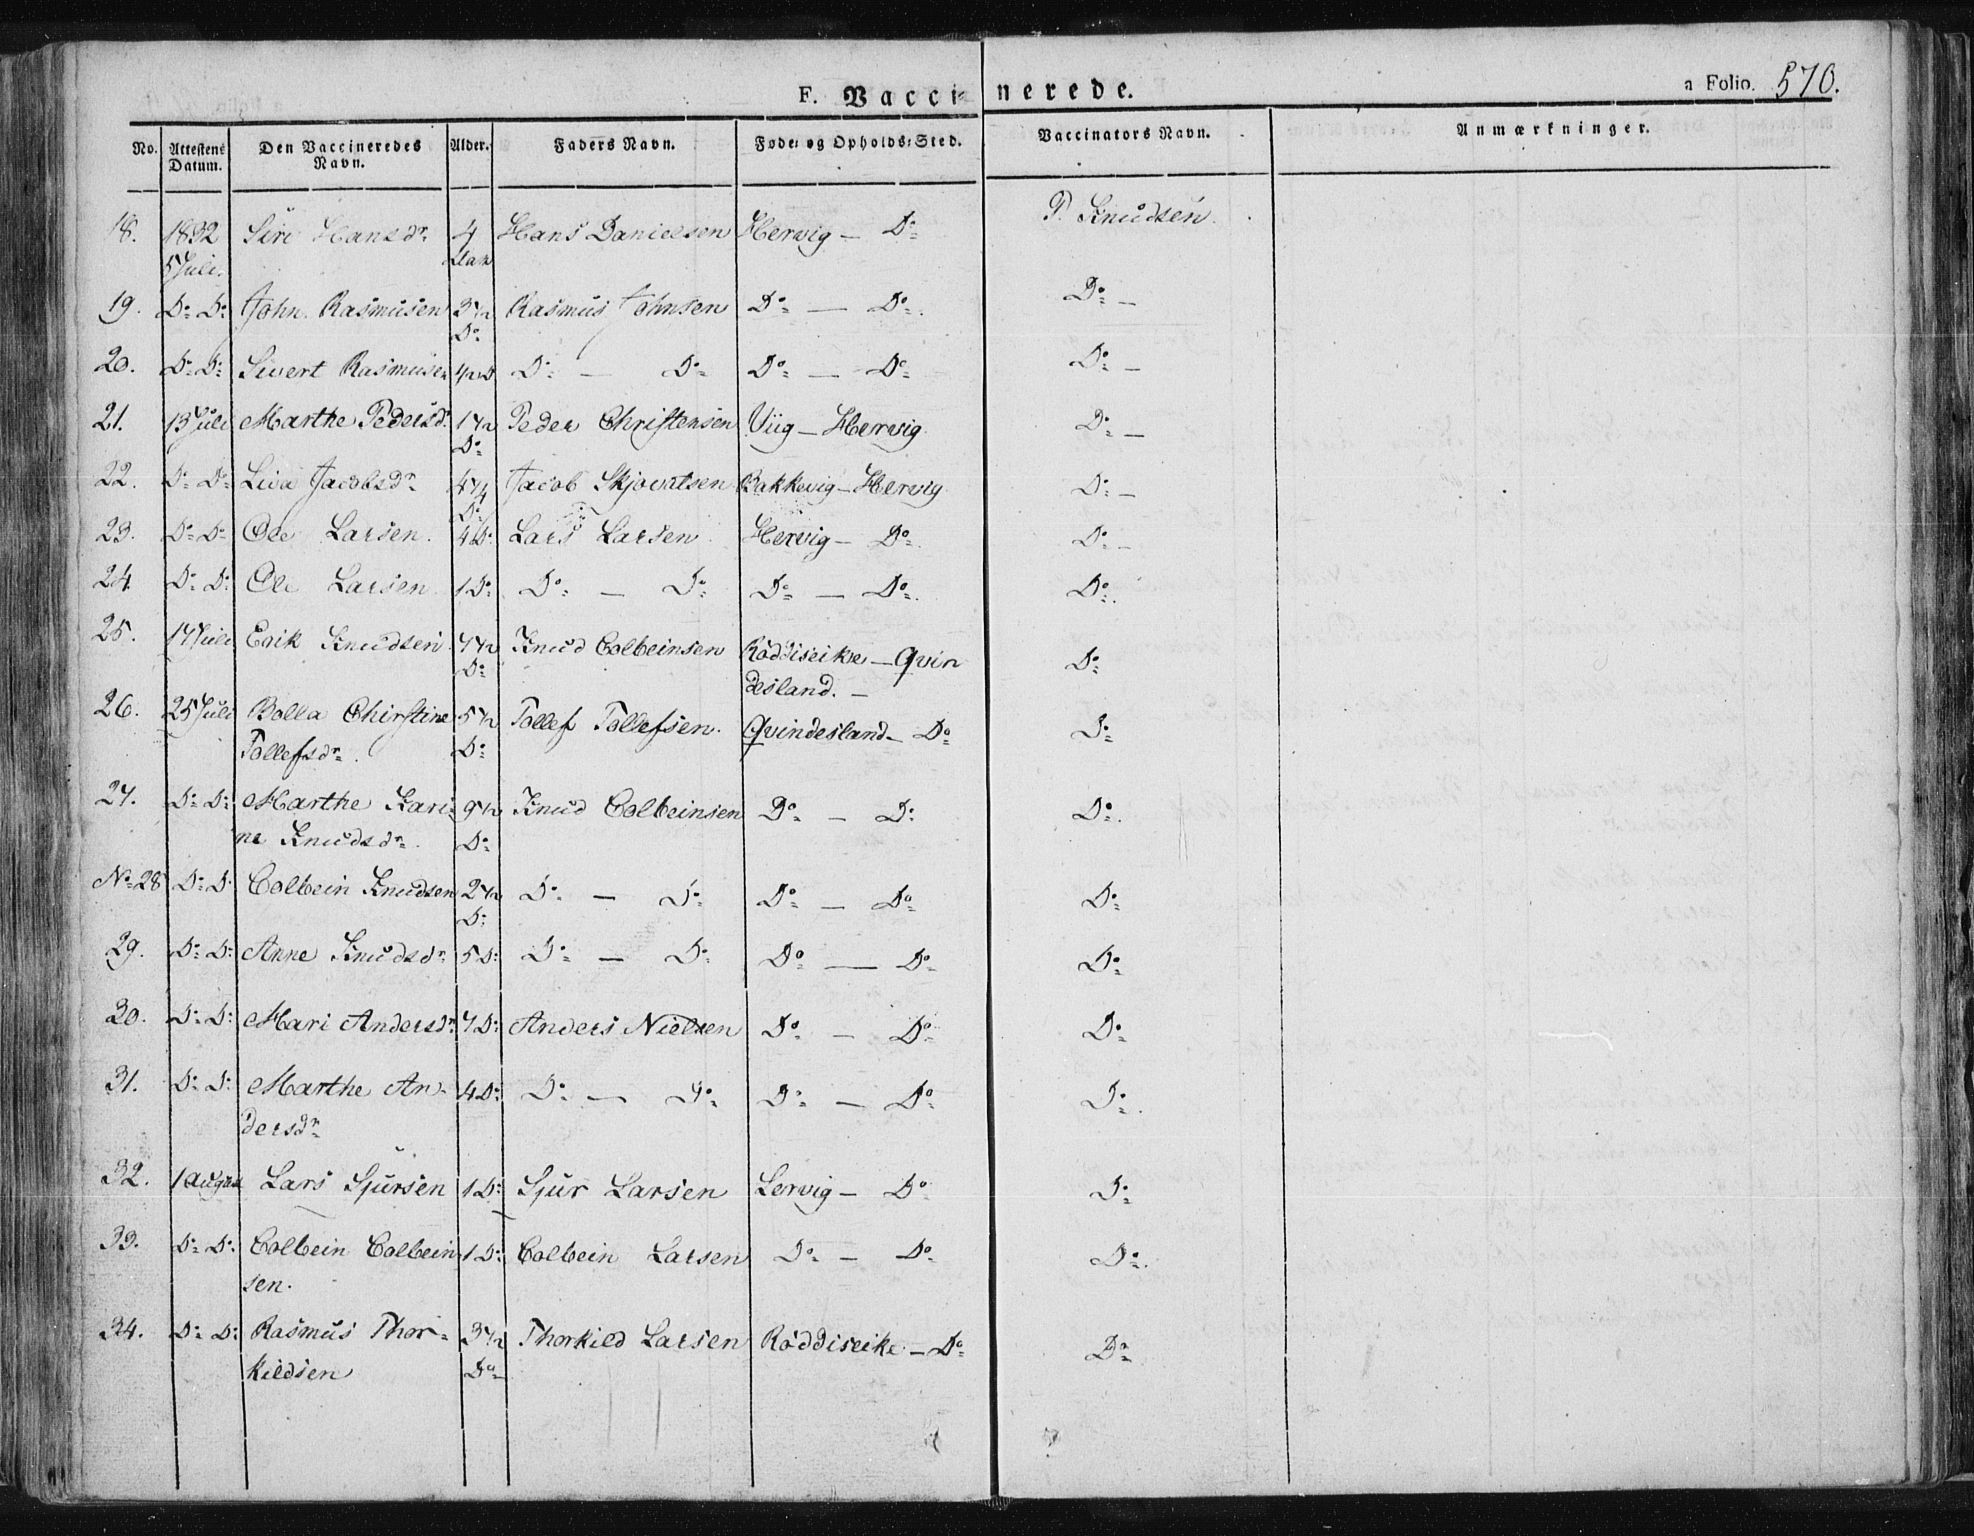 F. Vaccinerede.
a Folio. 570.
No. Attestens Datum. Den Vaccineredes Navn. Alder. Faders Navn. Føde- og Opholds-Sted. Vaccinators Navn. Anmærkninger.
18. 1832 5 Juli. Siri Hansdr. 4 Aar Hans Danielsen Hervig — Do P. Knudsen
19. Do Do John Rasmusen 3 1/2 Do Rasmus Johnsen Do — Do Do —
20. Do Do Sivert Rasmusen Do — Do Do — Do Do —
21. 13 Juli Marthe Pedersdr. 1 1/2 Do Peder Christensen Viig — Hervig Do —
22. Do Do Liva Jacobsdr. 4 1/4 Do Jacob Skjovalsen Bakkevig — Hervig Do —
23. Do Do Ole Larsen. 4 Do Lars Larsen Hervig — Do Do —
24 Do Do Ole Larsen 1 Do Do — Do Do — Do Do
25. 17 Juli Erik Knudsen 7 1/2 Do Knud Colbeinsen Röddiseike — Qvin
desland. — Do
26. 25 Juli Bolla Chirstine 5 1/2 Do Tollef Tollefsen. Qvindesland — Do Do
Tollefsdr.
27. Do Do Marthe Kari- 9 1/2 Do Knud Colbeinsen Do — Do Do
ne Knudsdr.
No 28 Do Do Colbein Knudsen 2 1/2 Do Do — Do Do — Do Do
29. Do Do Anne Knudsdr. 5 Do Do — Do Do — Do Do
30. Do Do Mari Andersdr. 7 Do Anders Nielsen Do — Do Do
31. Do Do Marthe An- 4 Do Do — Do Do — Do Do
dersdr.
32. 1 August Lars Sjursen 1 Do Sjur Larsen Lervig — Do Do
33. Do Do Colbein Colbein 1 Do Colbein Larsen Do — Do Do
sen.
34. Do Do Rasmus Thor- 3 1/2 Do Thorkild Larsen Röddiseike — Do Do
kildsen